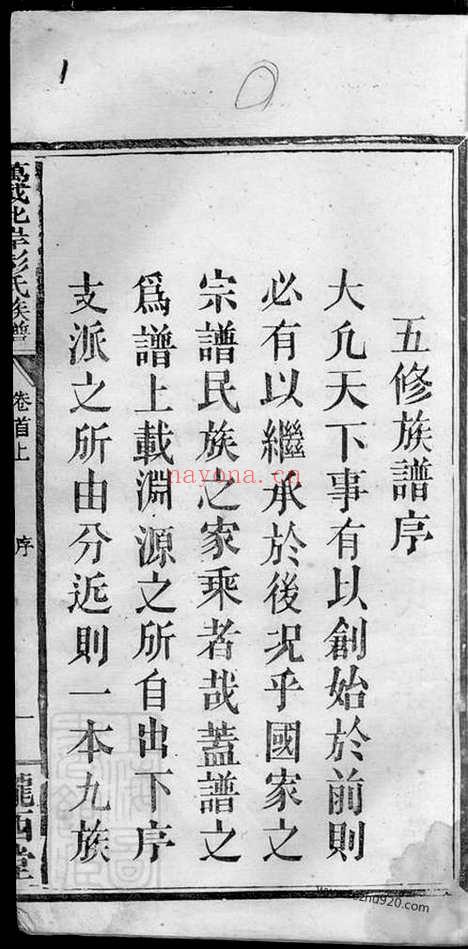 五修族譜序
大凡天下事有以創始於前則
必有以繼承於後況乎國家之
宗譜民族之家乘者哉蓋譜之
爲譜上載淵源之所自出下序
支派之所由分近則一本九族
萬載北岸彭氏族譜
卷首上
序
一
隴西堂
1
nayona.cn